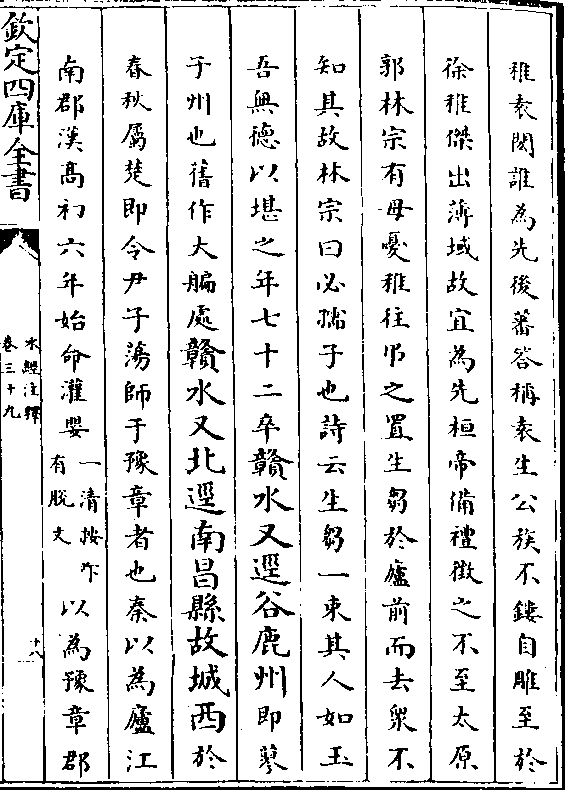 稚袁閎誰為先後蕃答稱袁生公族不鏤自雕至於
徐稚傑出薄域故宜為先桓帝備禮徵之不至太原
郭林宗有母憂稚往弔之置生芻於廬前而去衆不
知其故林宗曰必孺子也詩云生芻一束其人如玉
吾無徳以堪之年七十二卒贛水又逕谷鹿州即蓼
子州也舊作大艑處贛水又北逕南昌縣故城西於
春秋屬楚即令尹子蕩師于豫章者也秦以為廬江
南郡漢髙初六年始命灌嬰一清按下有脫文以為豫章郡
欽定四庫全書
水經注釋
卷三十九
十八